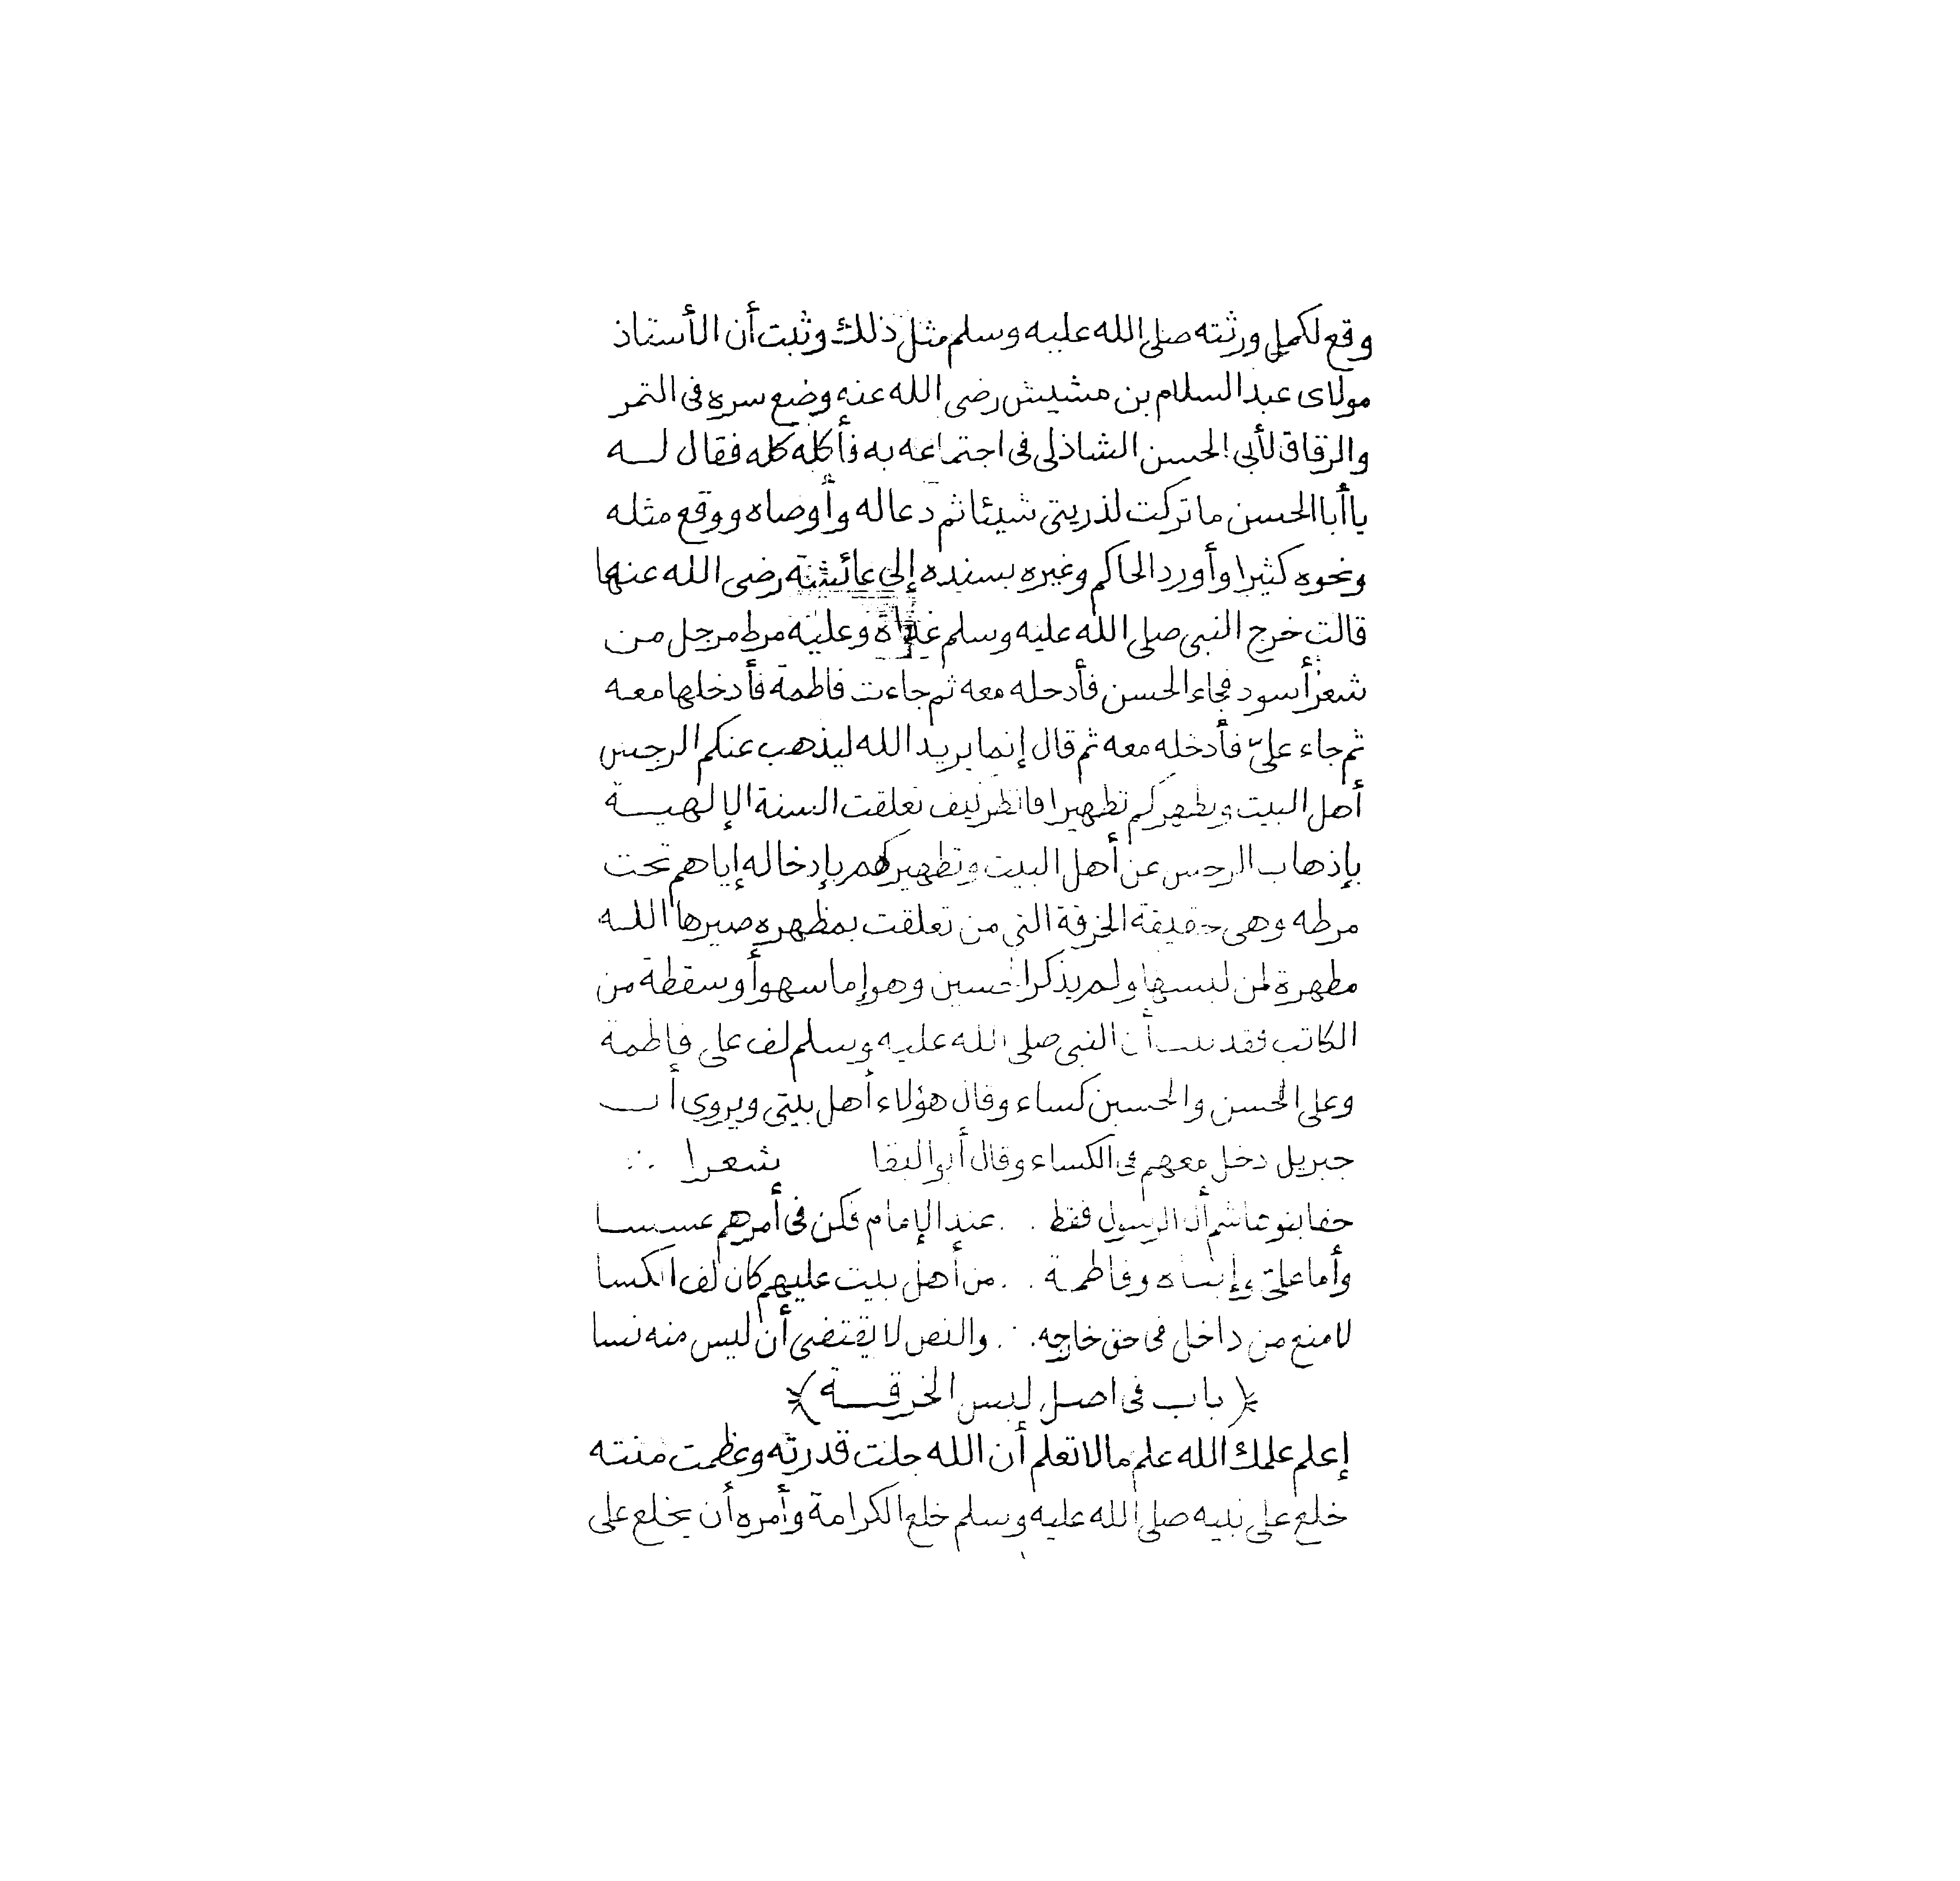 وقع لكمل ورثته صلى الله عليه وسلم مثل ذلك وثبت أن الأستاذ
مولاى عبد السلام بن مشيش رضى الله عنه وضع سره فى التمر
والرقاق لأبى الحسن الشاذلى فى اجتماعه به فأكله كله فقال لـــه
يا أبا الحسن ما تركت لذريتى شيئا ثم دعا له وأوصاه ووقع مثله
ونحوه كثيرا وأورد الحاكم وغيره بسنده إلى عائشة رضى الله عنها
قالت خرج النبى صلى الله عليه وسلم غداة وعليه مرط مرجل من
شعر أسود فجاء الحسن فأدحله معه ثم جاءت فاطمة فأدخلها معه
ثم جاء علىّ فأدخله معه ثم قال إنما يريد الله ليذهب عنكم الرجس
أهل البيت ويطهركم تطهيرا فانظر كيف تعلقت السنة الإلهيـــة
بإذهاب الرجس عن أهل البيت وتطهيرهم بإدخاله إياهم تحت
مرطه وهى حقيقة الخرقة التى من تعلقت بمظهره صيرها اللـه
مطهرة لمن لبسها ولم يذكر الحسين وهو إما سهو أو سقطة من
الكاتب فقد أن النبى صلى الله عليه وسلم لف على فاطمة
وعلى الحسن والحسين كساء وقال هؤلاء أهل بيتى ويروى أن
جبريل دخل معهم فى الكساء وقال أبو البقا شعرا ∴
حفا بنو هاشم آل الرسول فقط ∴ عند الإمام فكن فى أمرهم عسسا
وأما علىّ وإبناه وفاطمة ∴ من أهل بيت عليهم كان لف الكسا
لا منع من داخل فى حق خاجه ∴ والنص لا يقتضى أن ليس منه نسا
﴿ باب فى اصل لبس الخرقـــة ﴾
إعلم علمك الله علم مالا تعلم أن الله جلت قدرته وعظمت منته
خلع على نبيه صلى الله عليه وسلم خلع الكرامة وأمره أن يخلع على